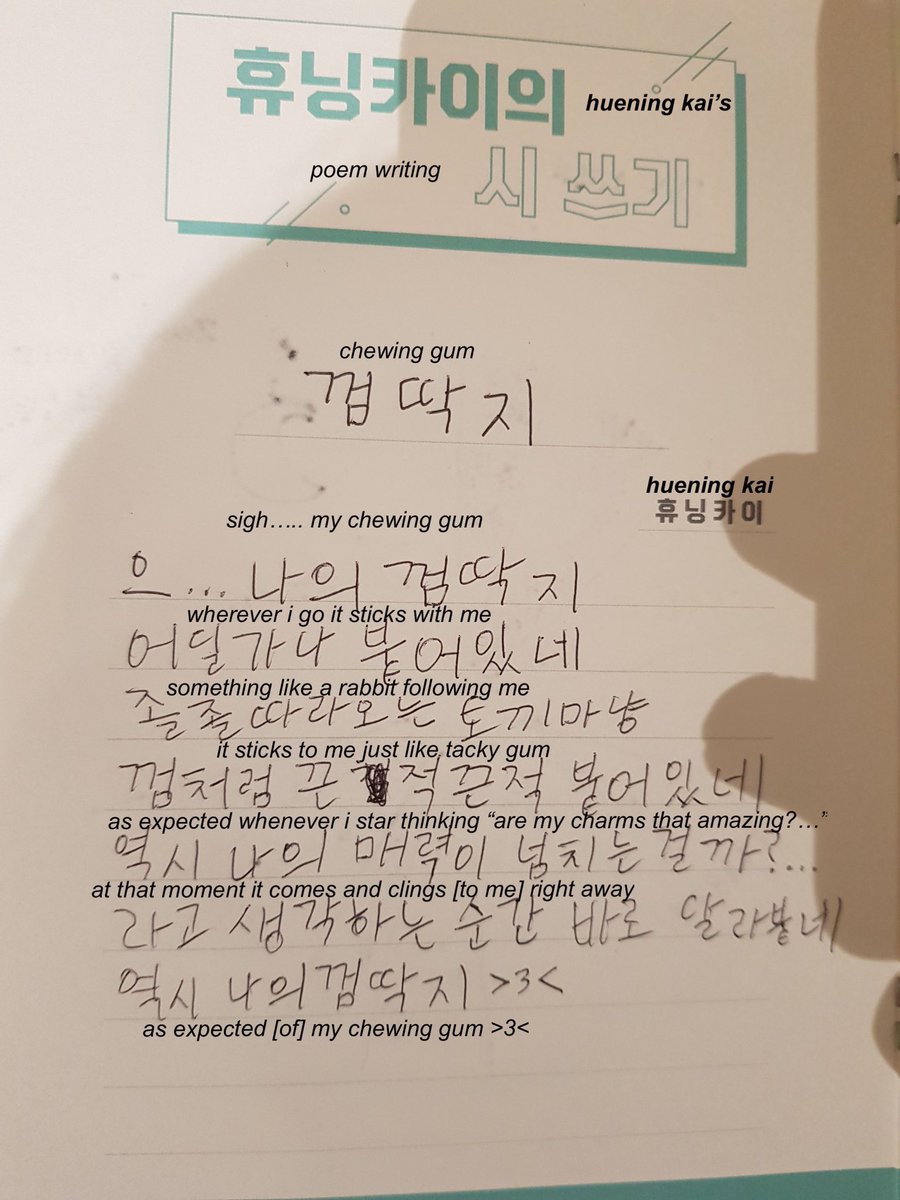 휴닝카이의 huening kai's
poem writing 시 쓰기
chewing gum
껌딱지
huening kai
휴닝카이
sigh….. my chewing gum
으... 나의 껌딱지
wherever i go it sticks with me
어딜가나 붙어있네
something like a rabbit following me
졸졸 따라오는 토끼마냥
it sticks to me just like tacky gum
껌처럼 끈적끈적 붙어있네
as expected whenever i star thinking “are my charms that amazing?…”
역시 나의 매력이 넘치는걸까?...
at that moment it comes and clings [to me] right away
라고 생각하는 순간 바로 달라붙네
역시 나의 껌딱지 >3<
as expected [of] my chewing gum >3<